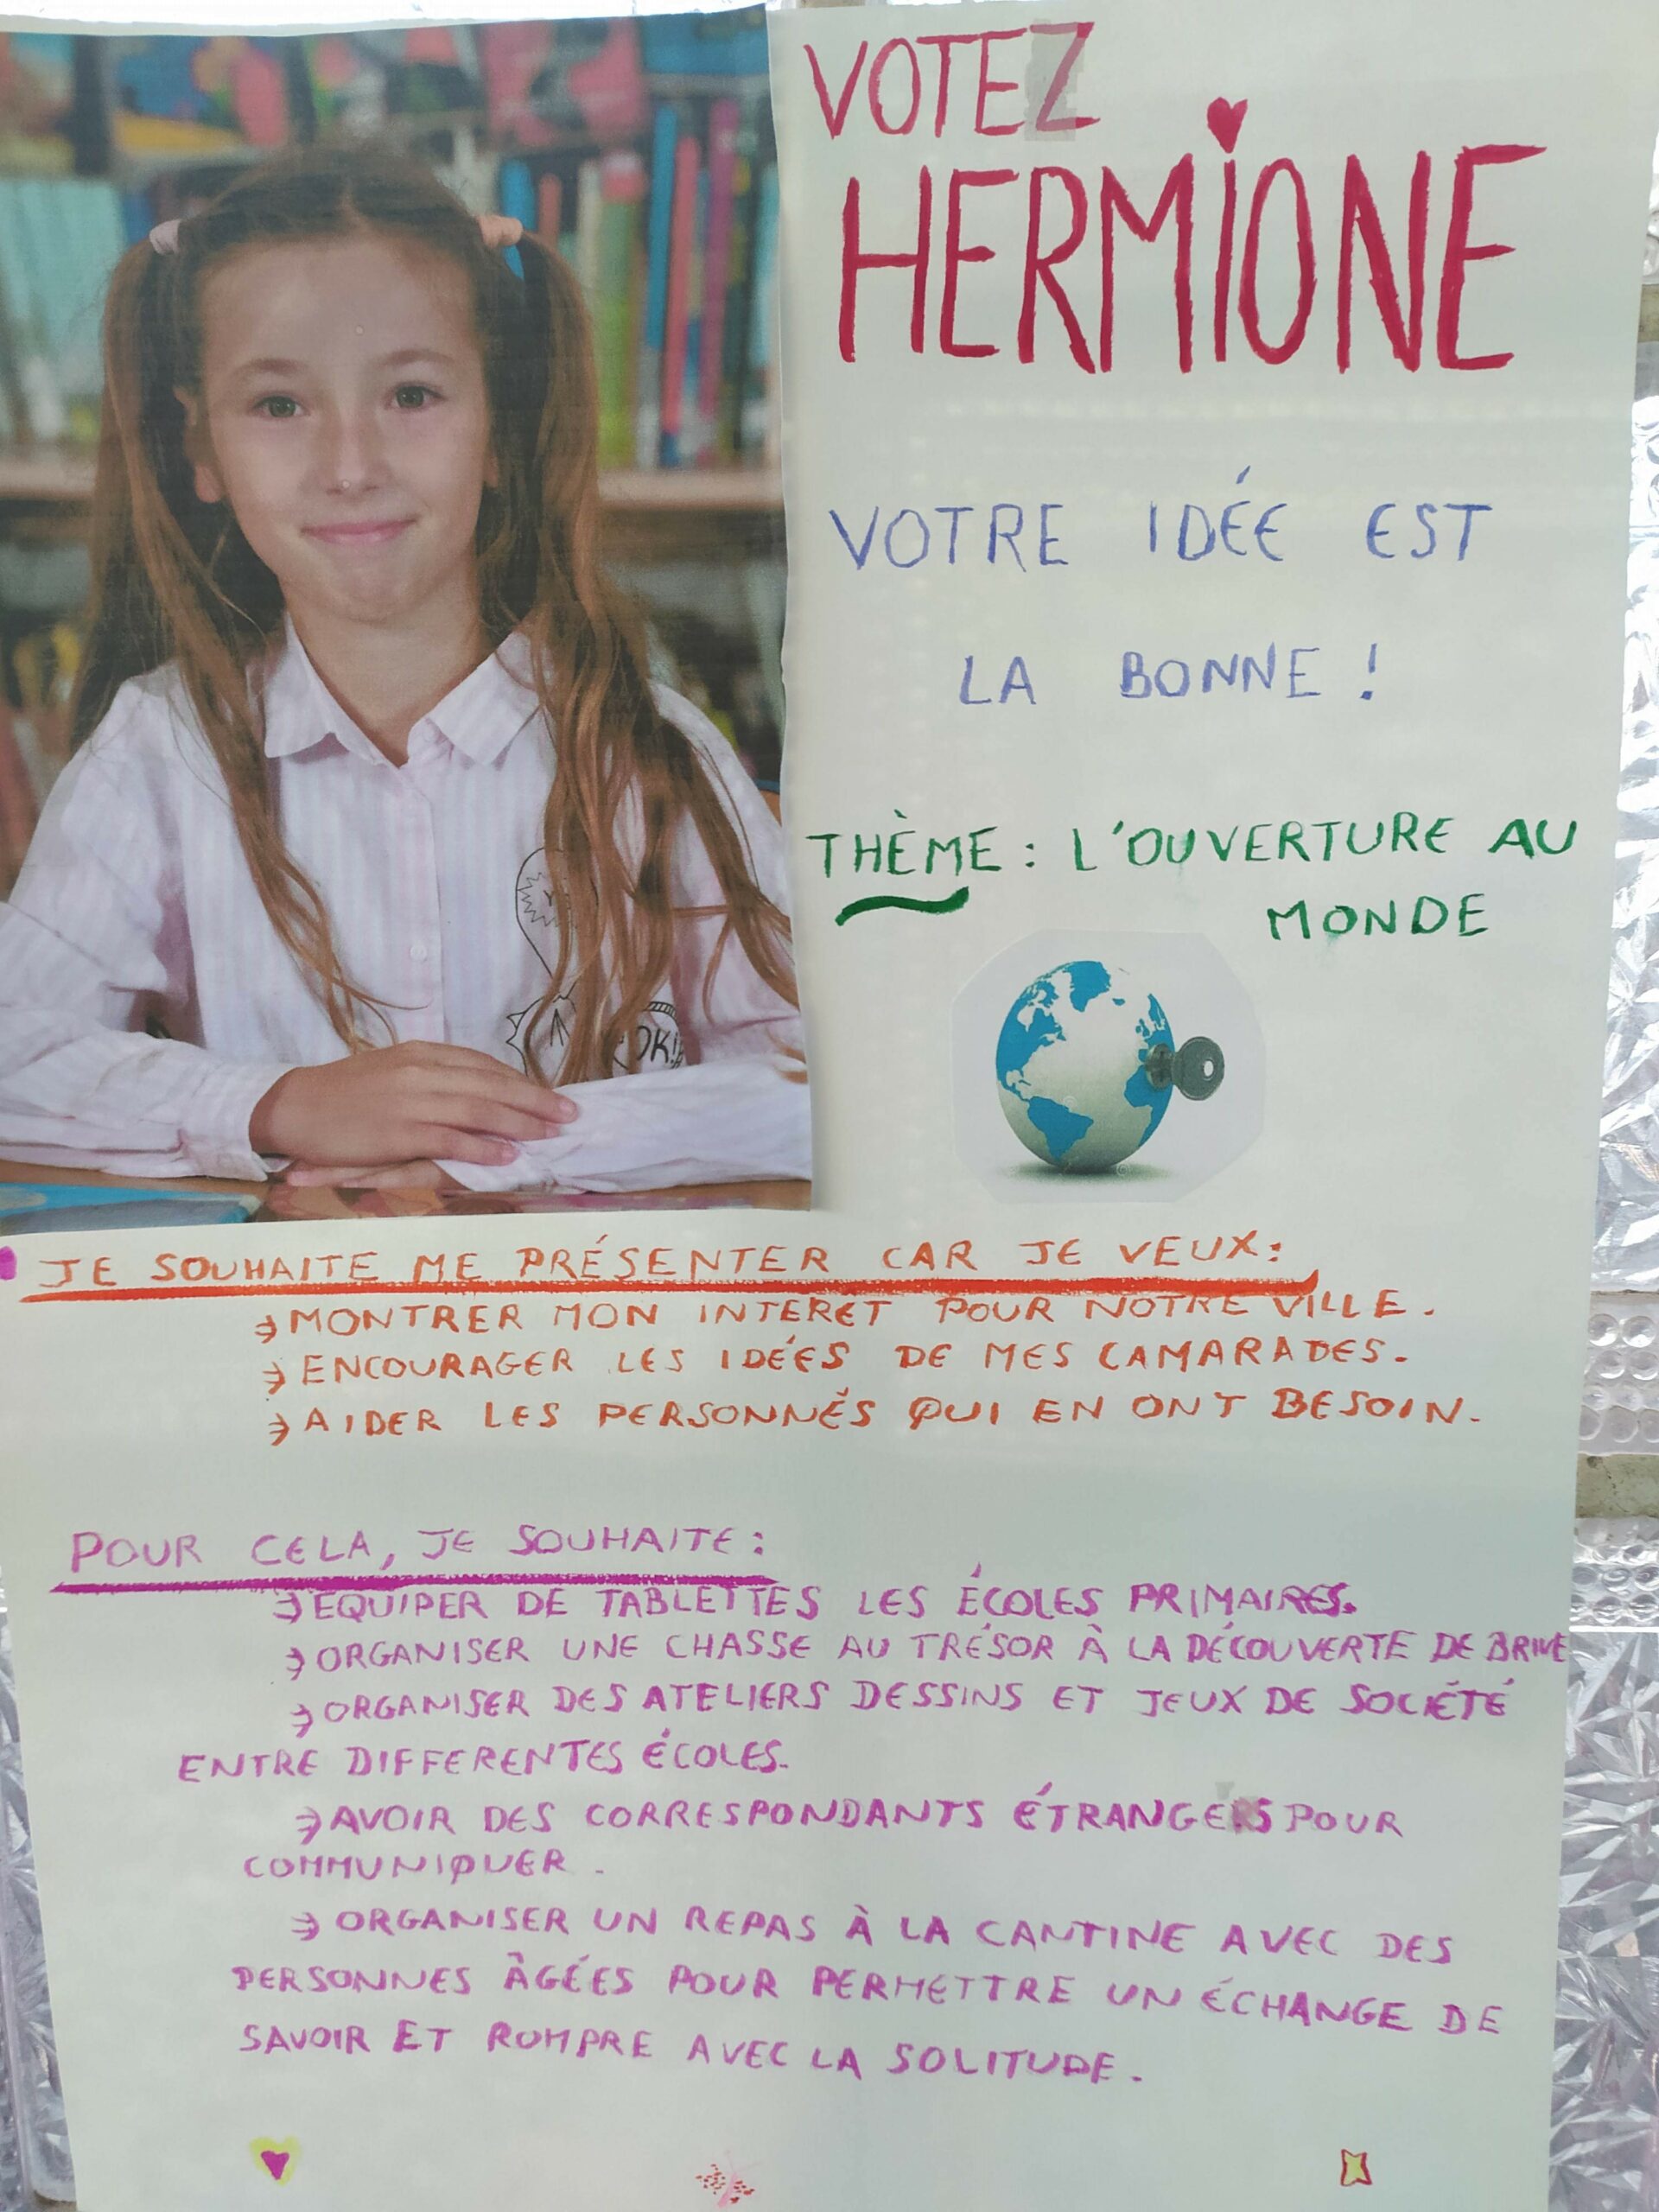 VOTEZ
HERMIONE
VOTRE IDÉE EST
LA BONNE !
THÈME : L'OUVERTURE AU
MONDE
OK!
JE SOUHAITE ME PRÉSENTER CAR JE VEUX :
→ MONTRER MON INTERET POUR NOTRE VILLE.
→ ENCOURAGER LES IDÉES DE MES CAMARADES.
→ AIDER LES PERSONNES QUI EN ONT BESOIN.
POUR CELA, JE SOUHAITE :
→ EQUIPER DE TABLETTES LES ÉCOLES PRIMAIRES.
→ ORGANISER UNE CHASSE AU TRÉSOR À LA DÉCOUVERTE DE BRIVE
→ ORGANISER DES ATELIERS DESSINS ET JEUX DE SOCIÉTÉ
ENTRE DIFFERENTES ÉCOLES.
→ AVOIR DES CORRESPONDANTS ÉTRANGERS POUR
COMMUNIQUER .
→ ORGANISER UN REPAS À LA CANTINE AVEC DES
PERSONNES ÂGÉES POUR PERMETTRE UN ÉCHANGE DE
SAVOIR ET ROMPRE AVEC LA SOLITUDE.